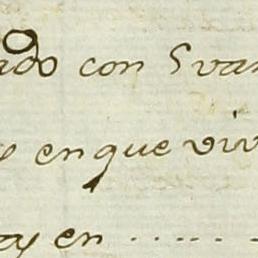 ado con Svan
y en que viv
ay en ......